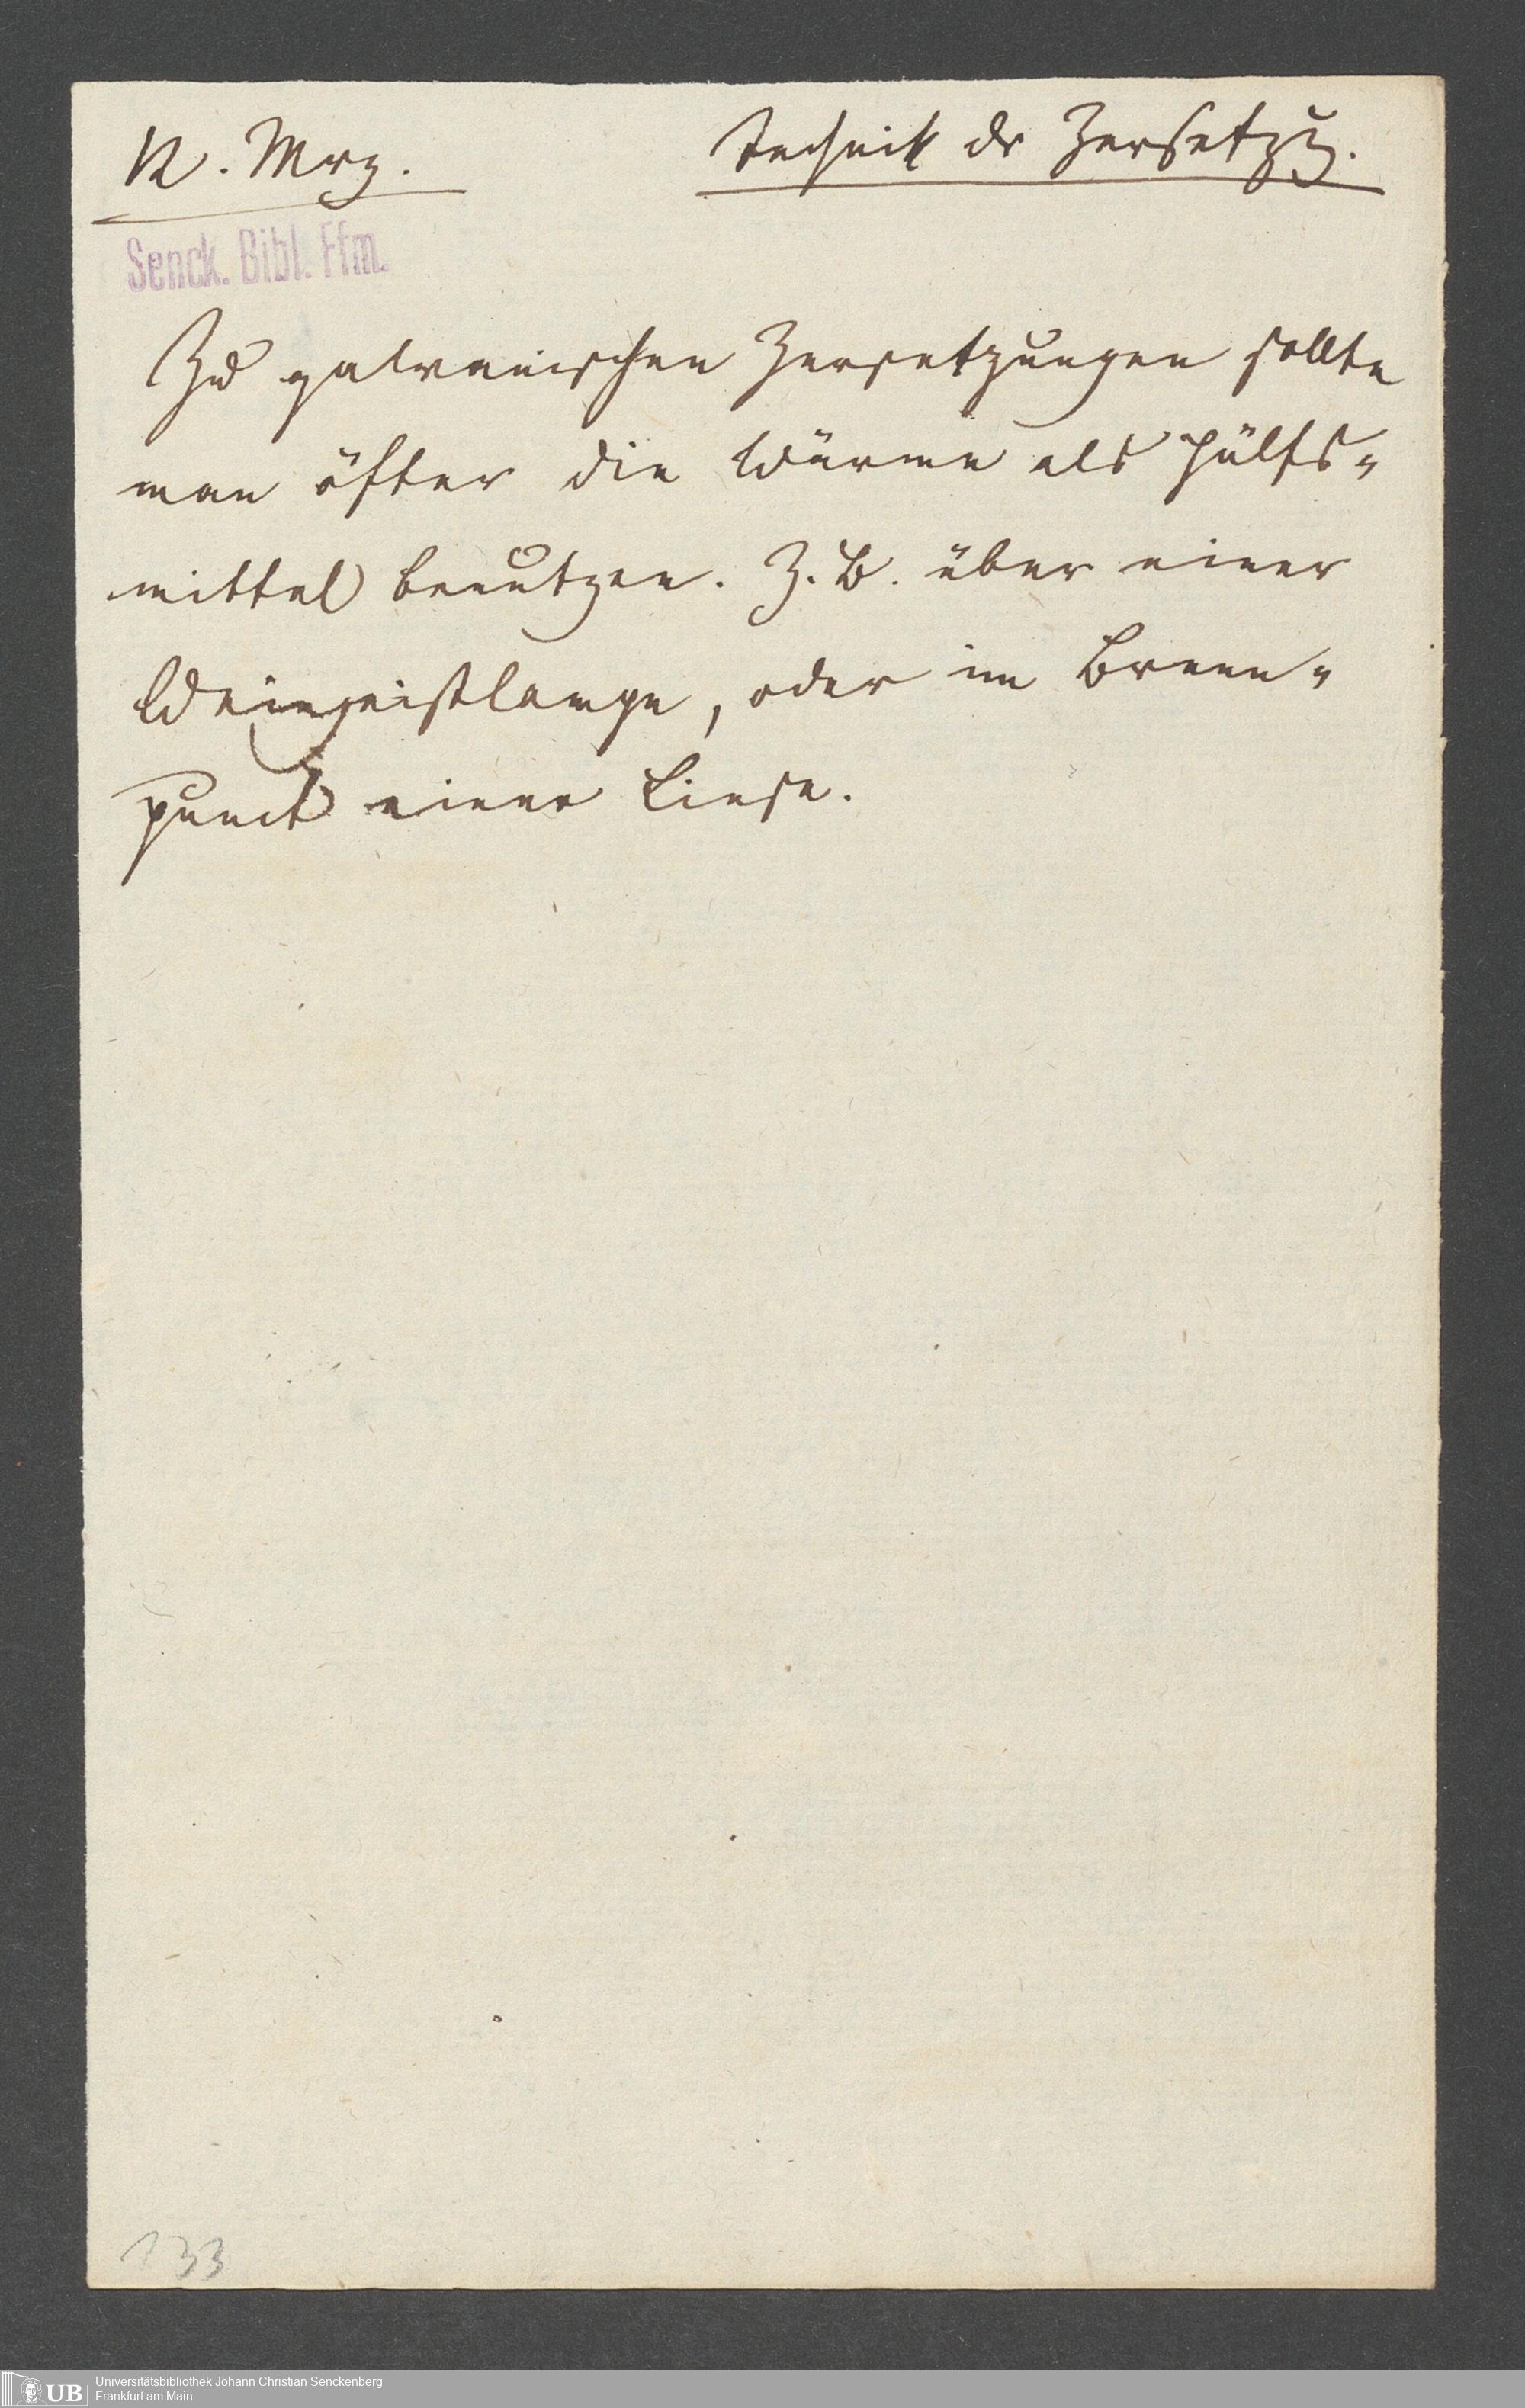 12. Mrz.
Technik dr Zersetzg.
Senck. Bibl. Ffm.
Zu galvanischen Zersetzungen sollte
man öfter die Wärme als Hülfs-
mittel benutzen. Z. B. über einer
Weingeistlampe, oder im Brenn-
punct einer Linse.
133
UB
Universitätsbibliothek Johann Christian Senckenberg
Frankfurt am Main